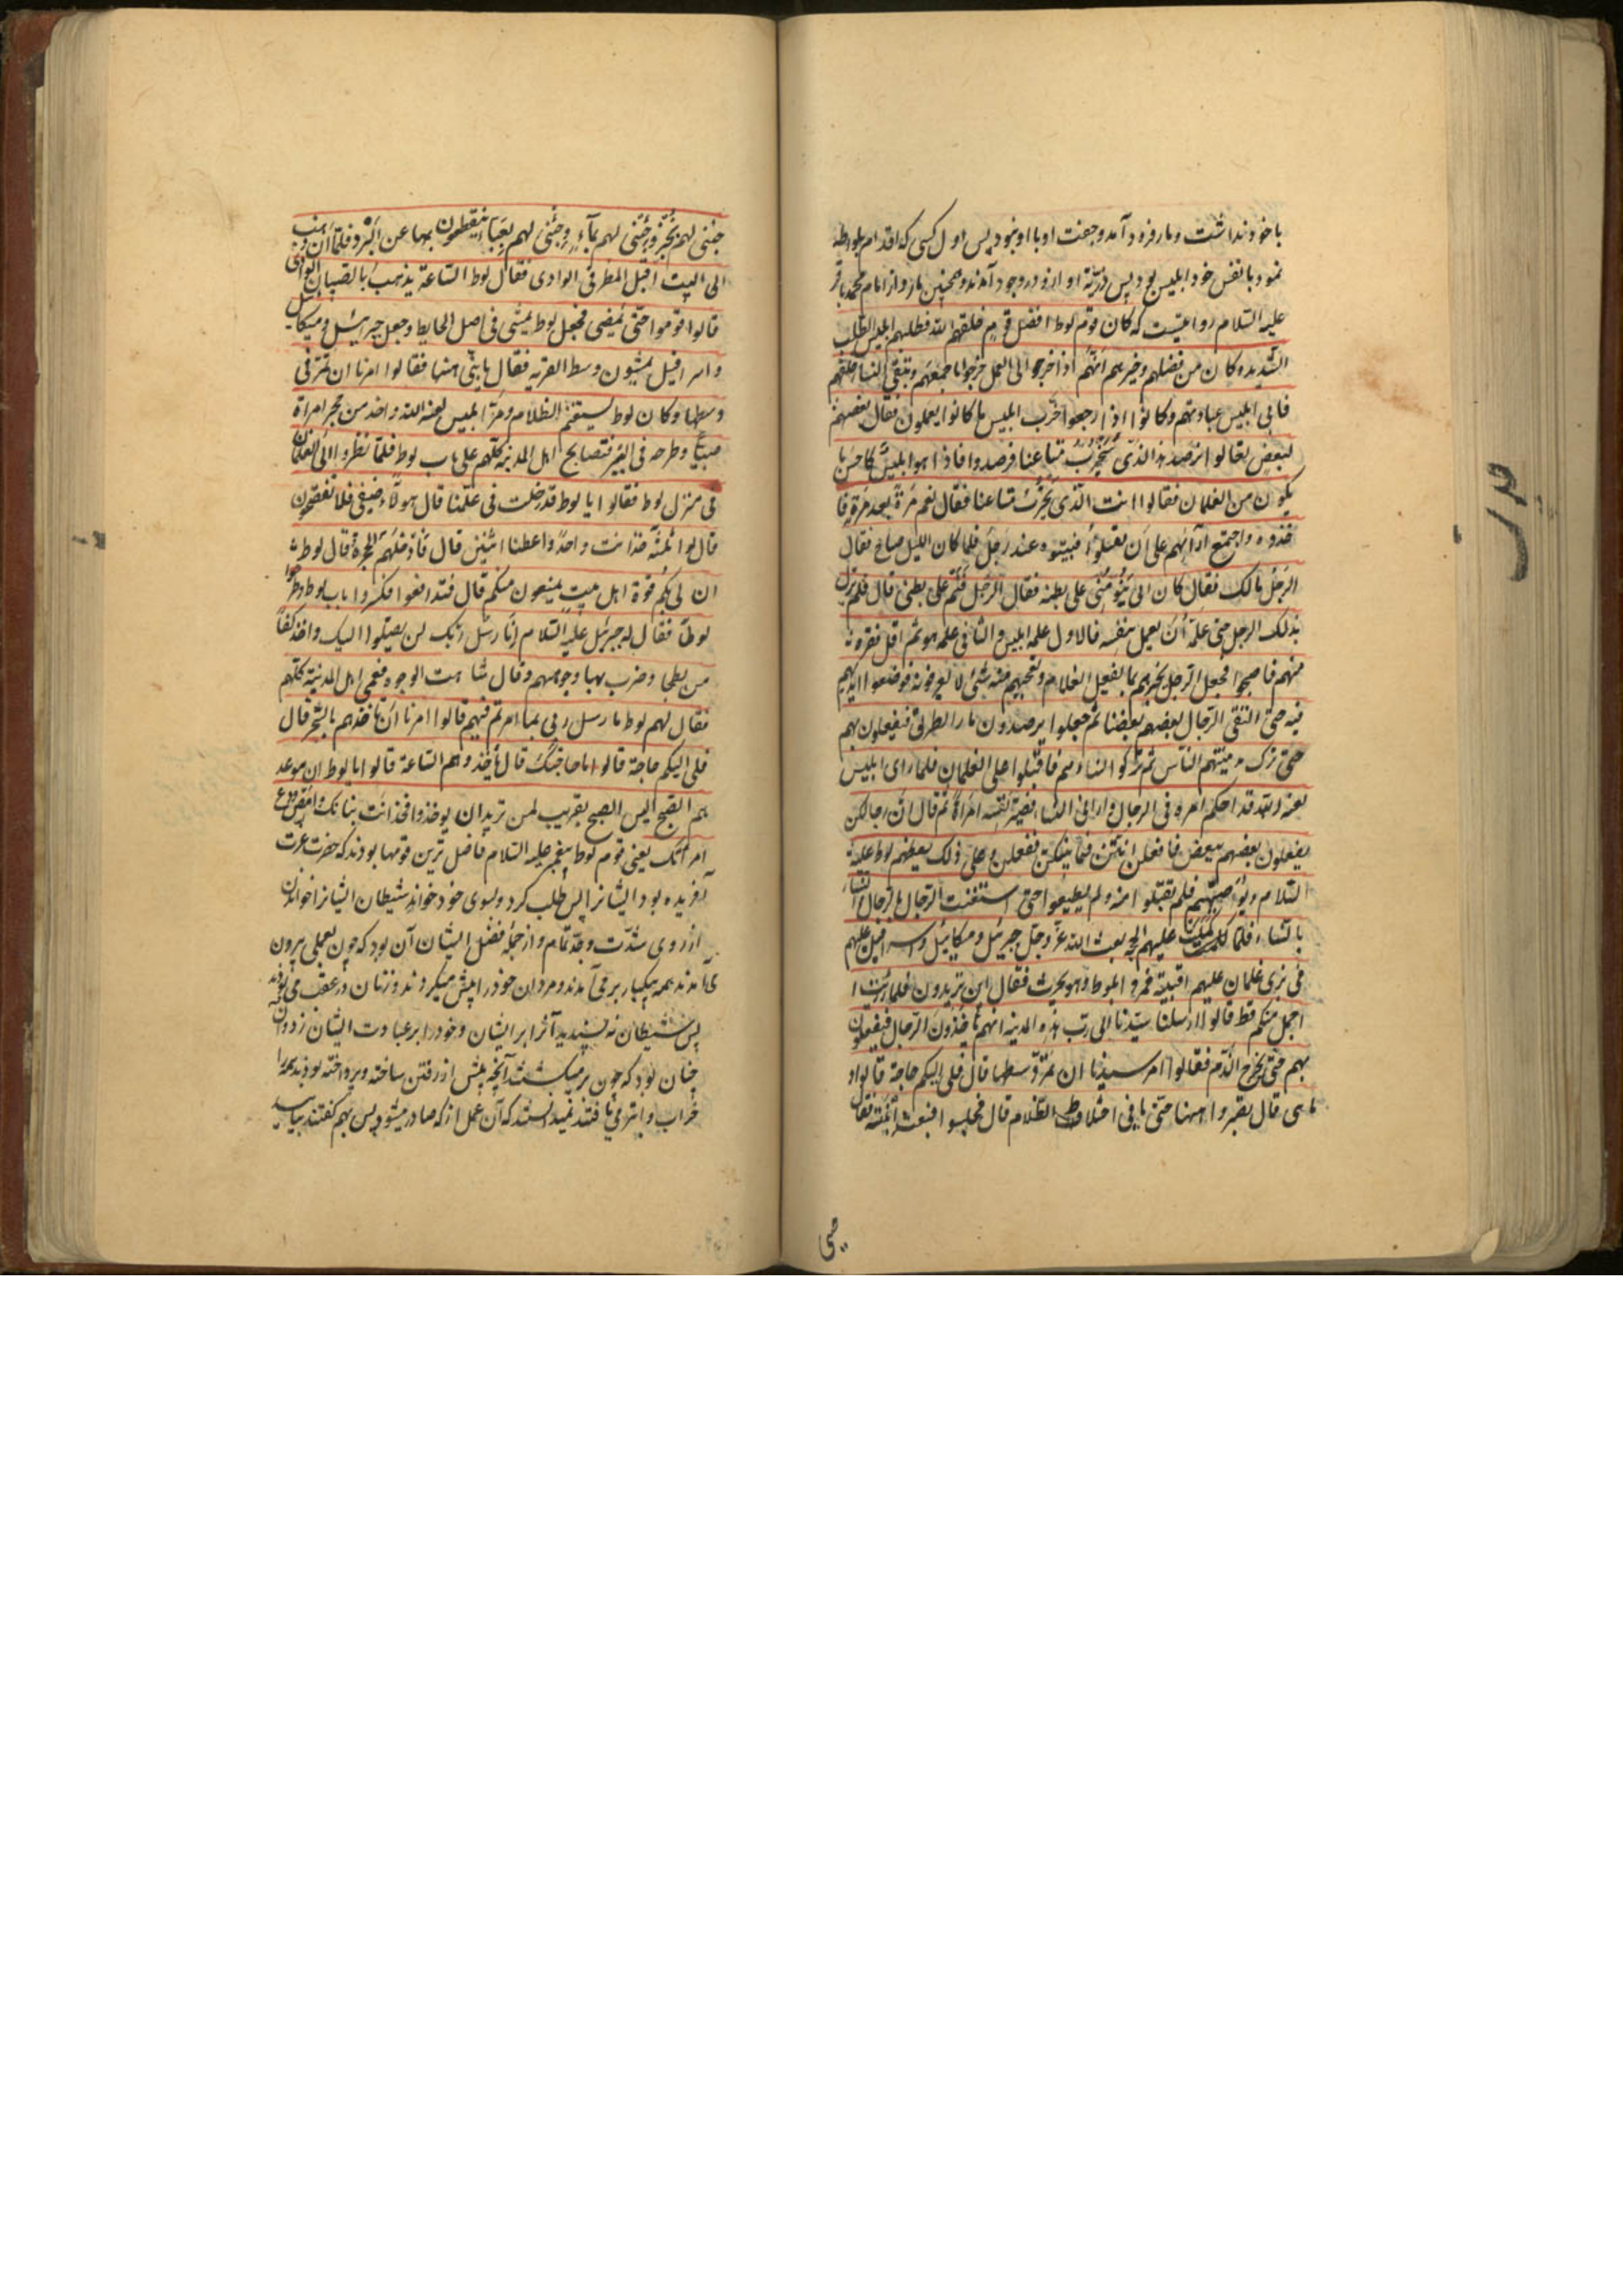 با خود نداشت و مار فرود آمد و جفت او با او نبود پس اول کسی که اقدام بلواطه
نمود با نفس خود ابلیس بود پس ذریّة او ازو در وجود آمدند و همچنین مار و از امام محمد باقر
علیه السّلام روایتست که کان قوم لوط افضل قوم خلقهم الله فطلبهم ابلیس الطلب
الشدیده کان من فضلهم و خیرهم انهّم اذا خرجوا الی العمل خرجوا باجمعهم و تبقی النساء خلفهم
فاتی ابلیس عبادتهم و کانوا اذا رجعوا خرّب ابلیس ما کانوا یعملون فقال بعضهم
لبعض تعالوا نرصد هذا الذّی یُخرّبُ متاعنا فرصدوا فاذا هو ابلیسُ کاحسن ما
یکون من الغلمان فقالوا انت الّذی یُخرّب متاعنا فقال نعم مرّةً بعد مرّةٍ فا
خذوه و اجتمع آرآئهم علی اَن یقتلوُا فبیتوه عند رجلٍ فلما کان اللیل صاح فقال
الرجل مالک فقال کان ابی یُنَوّمُنی علی بطنه فقال الرّجل فنَم علی بطنی قال فلم یزل
بذلک الرجل حتی علّمه اَن یعمل بنفسه فالاول علمه ابلیس و الثانی علمه هو ثم
منهم فاصبحوا فجعل الرّجل یخبرهم بما یفعل الغلام و یعجبهم منه شیئ لا یعرفونه فوضعوا ایدیهم
فیه حتی اکتفی الرّجال بعضهم ببعض ثم جعلوا یرصدون مار الطریق فیفعلون بهم
حتی ترک مدینتهم النّاس ثم ترکوا النساءهم فاقبلوا علی الغلمان فلما رای ابلیس
لعنه الله قد احکم امره فی الرجال دار الی النساء فصیّر نفسه امراةً ثم قال انّ رجالکن
یفعلون بعضهم ببعض فافعلن انتنّ فیما بینکنّ ففعلن و علی ذلک یعظهم لوط علیه
السّلام و یُوَصیهم فلم یقبلوا منه و لم یطیعوا حتی استغنت الرّجال بالرّجال و النساء
بالنساء فلمّا کملت علیهم الحجه بعث الله عزّ و جلّ جبرئیل و میکائیل و اسرافیل علیهم
فی زی غلمان علیهم اقبیة فمروا بلوط و هو یحرث فقال این تریدون فلما رایت ا
اجمل منکم قط قالوا ارسلنا سیّدنا الی ربّ هذه المدینه انهم یاخذون الرّجال فیفعلون
بهم حتی یخرج الدّم فقالوا امر سیدنا ان نمُرّ وسطها قال فلی الیکم حاجة قالوا و
ما هی قال تصبروا ههنا حتی یاتی اختلاط الظّلام قال فجلسوا فبعث ابنته فقال
جئنی لهم بخُبزٍ و جئنی لهم بمآءٍ و جئنی لهم بعَباءٍ یتغطون بها عن البَرد فلمّا اَن ذهبت
الی البیت اقبل المطر فی الوادی فقال لوط السّاعة یذهب بالصبیان الوادی
قالوا قوموا حتی نمضی فجعل لوط یمشی فی اصل الحایط و جعل جبرائیل و میکائیل
و اسرافیل یمشون وسط القریه فقال یا بنیّ ههنا فقالوا امرنا ان نمرّ فی
وسطها و کان لوط یستغنم الظلام و مرّ ابلیس لعنه الله و اخذ من حجر امراة
صبیّاً و طرحه فی البئر فتصایح اهل المدینه کلّهم علی باب لوط فلمّا نظروا الی الغلمان
فی منزل لوط فقالوا یا لوط قد دخلت فی عملنا قال هولاء ضیفی فلا تفضحون
قالوا ثلثة خذ انت واحداً و اعطنا اثنین قال فَاَدخلهم الحجرة قال لوط
ان لی بکم قوة اهل بیت یمنعون منکم قال فتدافعوا فکسروا باب لوط و طرحوا
لوطاً فقال له جبرئیل علیه السّلام اِنّا رسُل ربّک لن یصلوا الیک و اخذ کفاً
من بطحا و ضرب بها وجوههم و قال شاهت الوجوه فعمی اهل المدینة کلّهم
فقال لهم لوط یا رسل ربی بما امرتم فیهم قالوا امرنا اَن ناخذهم بالسّحر قال
فلی الیکم حاجة قالوا ما حاجتک قال تاخذوهم السّاعة قالوا یا لوط ان موعد
هم الصّبح الیس الصبح بقریب لمن تریدان یوخذ و فخذ انت بناتک و امض و دع
امراتک یعنی قوم لوط پیغمبر علیه السّلام فاضل ترین قومها بودند که حضرت عزت
آفریده بود ایشانرا پس طلب کرد و بسوی خود خواند شیطان ایشانرا خواندن
از روی شدّت و جدّ تمام و از جملهٔ فضل ایشان آن بود که چون بعملی بیرون
می آمدند همه بیکبار بر می آمدند و مردان خود را پیش میکردند و زنان در عقب می بودند
پس شیطان نه پسندید آنرا بر ایشان و خود را بر عبادت ایشان زد و آن
چنان بود که چون بر میگشتند آنچه پیش از رفتن ساخته و پرداخته بودند همه را
خراب و ابتر می یافتند نمیدانستند که آن عمل از که صادر میشود پس بهم گفتند بیایید